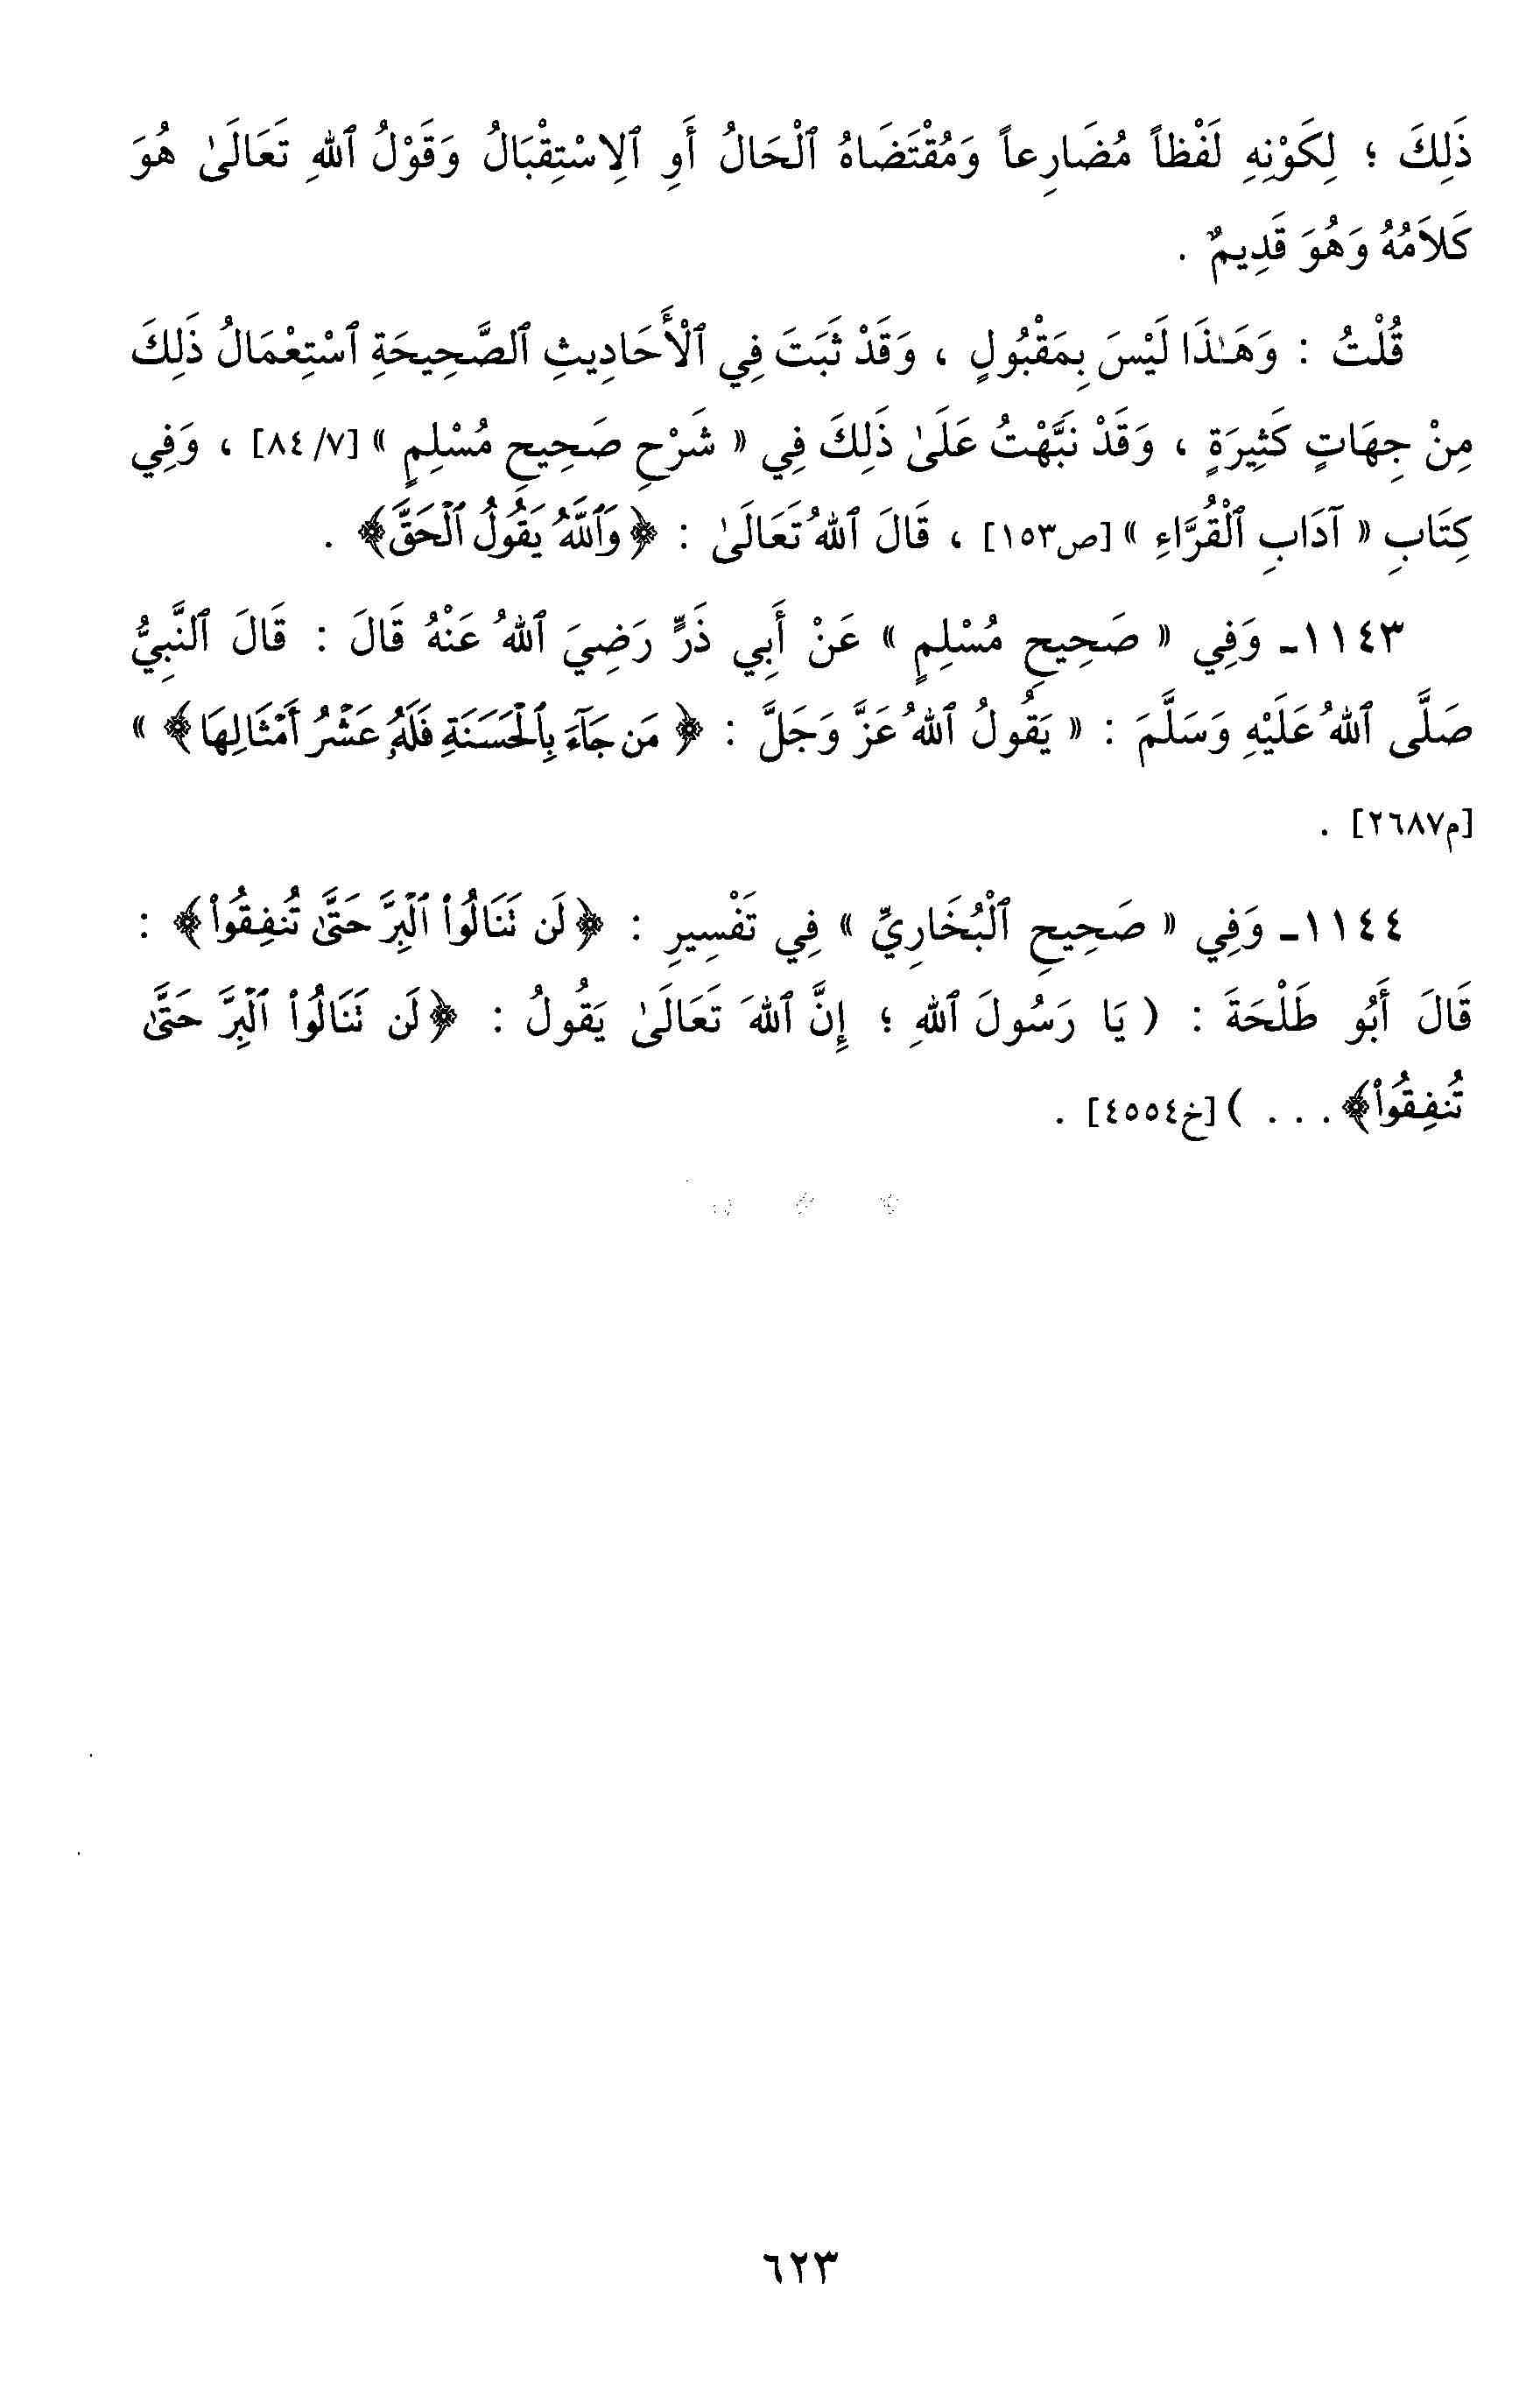 ذَلِكَ ؛ لِكَوْنِهِ لَفْظاً مُضَارِعاً وَمُقْتَضَاهُ ٱلْحَالُ أَوِ ٱلِاسْتِقْبَالُ وَقَوْلُ ٱللهِ تَعَالَىٰ هُوَ
كَلاَمُهُ وَهُوَ قَدِيمٌ .
قُلْتُ : وَهَـٰذَا لَيْسَ بِمَقْبُولٍ ، وَقَدْ ثَبَتَ فِي ٱلْأَحَادِيثِ ٱلصَّحِيحَةِ ٱسْتِعْمَالُ ذَلِكَ
مِنْ جِهَاتٍ كَثِيرَةٍ ، وَقَدْ نَبَّهْتُ عَلَىٰ ذَلِكَ فِي « شَرْحِ صَحِيحِ مُسْلِمٍ » [٧/ ٨٤] ، وَفِي
كِتَابِ « آدَابِ ٱلْقُرَّاءِ » [ص١٥٣] ، قَالَ ٱللهُ تَعَالَىٰ : ﴿وَٱللَّهُ يَقُولُ ٱلْحَقَّ﴾ .
١١٤٣ـ وَفِي « صَحِيحِ مُسْلِمٍ » عَنْ أَبِي ذَرٍّ رَضِيَ ٱللهُ عَنْهُ قَالَ : قَالَ ٱلنَّبِيُّ
صَلَّى ٱللهُ عَلَيْهِ وَسَلَّمَ : « يَقُولُ ٱللهُ عَزَّ وَجَلَّ : ﴿مَن جَآءَ بِٱلْحَسَنَةِ فَلَهُۥ عَشْرُ أَمْثَالِهَا﴾ »
[م٢٦٨٧] .
١١٤٤ـ وَفِي « صَحِيحِ ٱلْبُخَارِيِّ » فِي تَفْسِيرِ : ﴿لَن تَنَالُوا۟ ٱلْبِرَّ حَتَّىٰ تُنفِقُوا۟﴾ :
قَالَ أَبُو طَلْحَةَ : ( يَا رَسُولَ ٱللهِ ؛ إِنَّ ٱللهَ تَعَالَىٰ يَقُولُ : ﴿لَن تَنَالُوا۟ ٱلْبِرَّ حَتَّىٰ
تُنفِقُوا۟﴾. . . ) [خ٤٥٥٤] .
٦٢٣